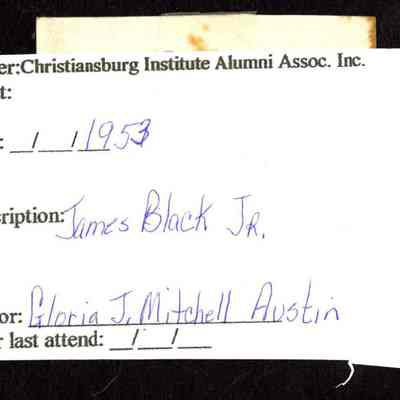 er:Christiansburg Institute Alumni Assoc. Inc.
t:
: __/__/1953
ription: James Black Jr.
or: Gloria J. Mitchell Austin
r last attend: __/__/__